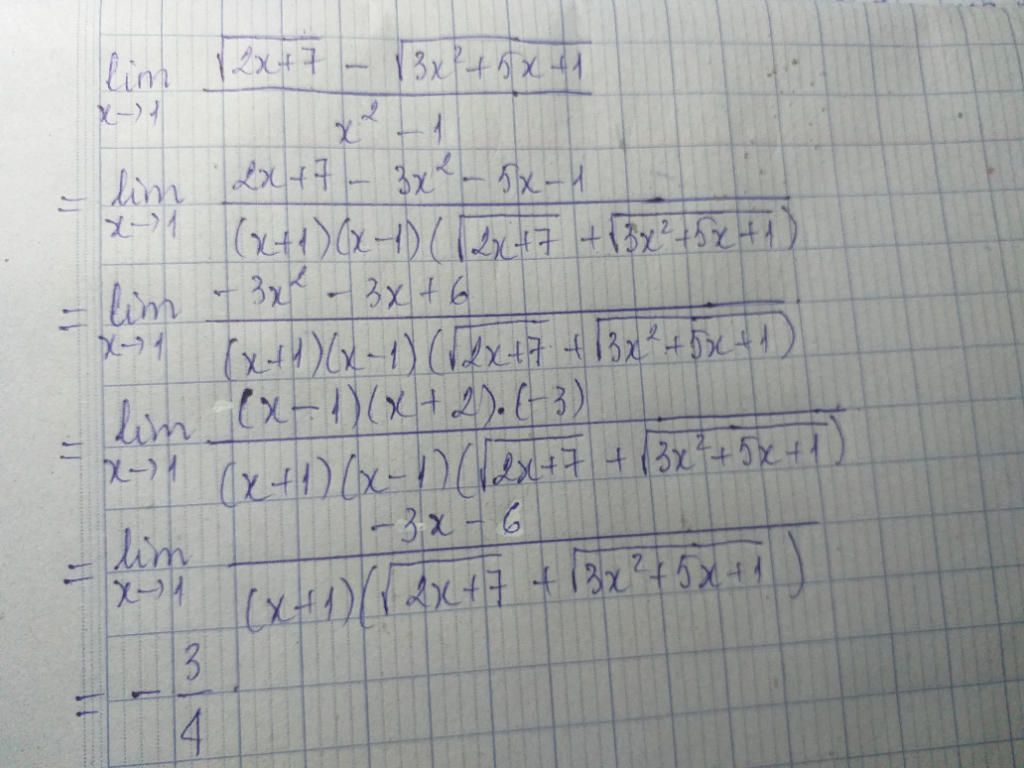 lim x→1 (√(2x+7) − √(3x²+5x+1)) / (x² − 1)
= lim x→1 (2x+7 − 3x² − 5x − 1) / ((x+1)(x−1)(√(2x+7) + √(3x²+5x+1)))
= lim x→1 (−3x² − 3x + 6) / ((x+1)(x−1)(√(2x+7) + √(3x²+5x+1)))
= lim x→1 ((x−1)(x+2).(−3)) / ((x+1)(x−1)(√(2x+7) + √(3x²+5x+1)))
= lim x→1 (−3x − 6) / ((x+1)(√(2x+7) + √(3x²+5x+1)))
= − 3/4